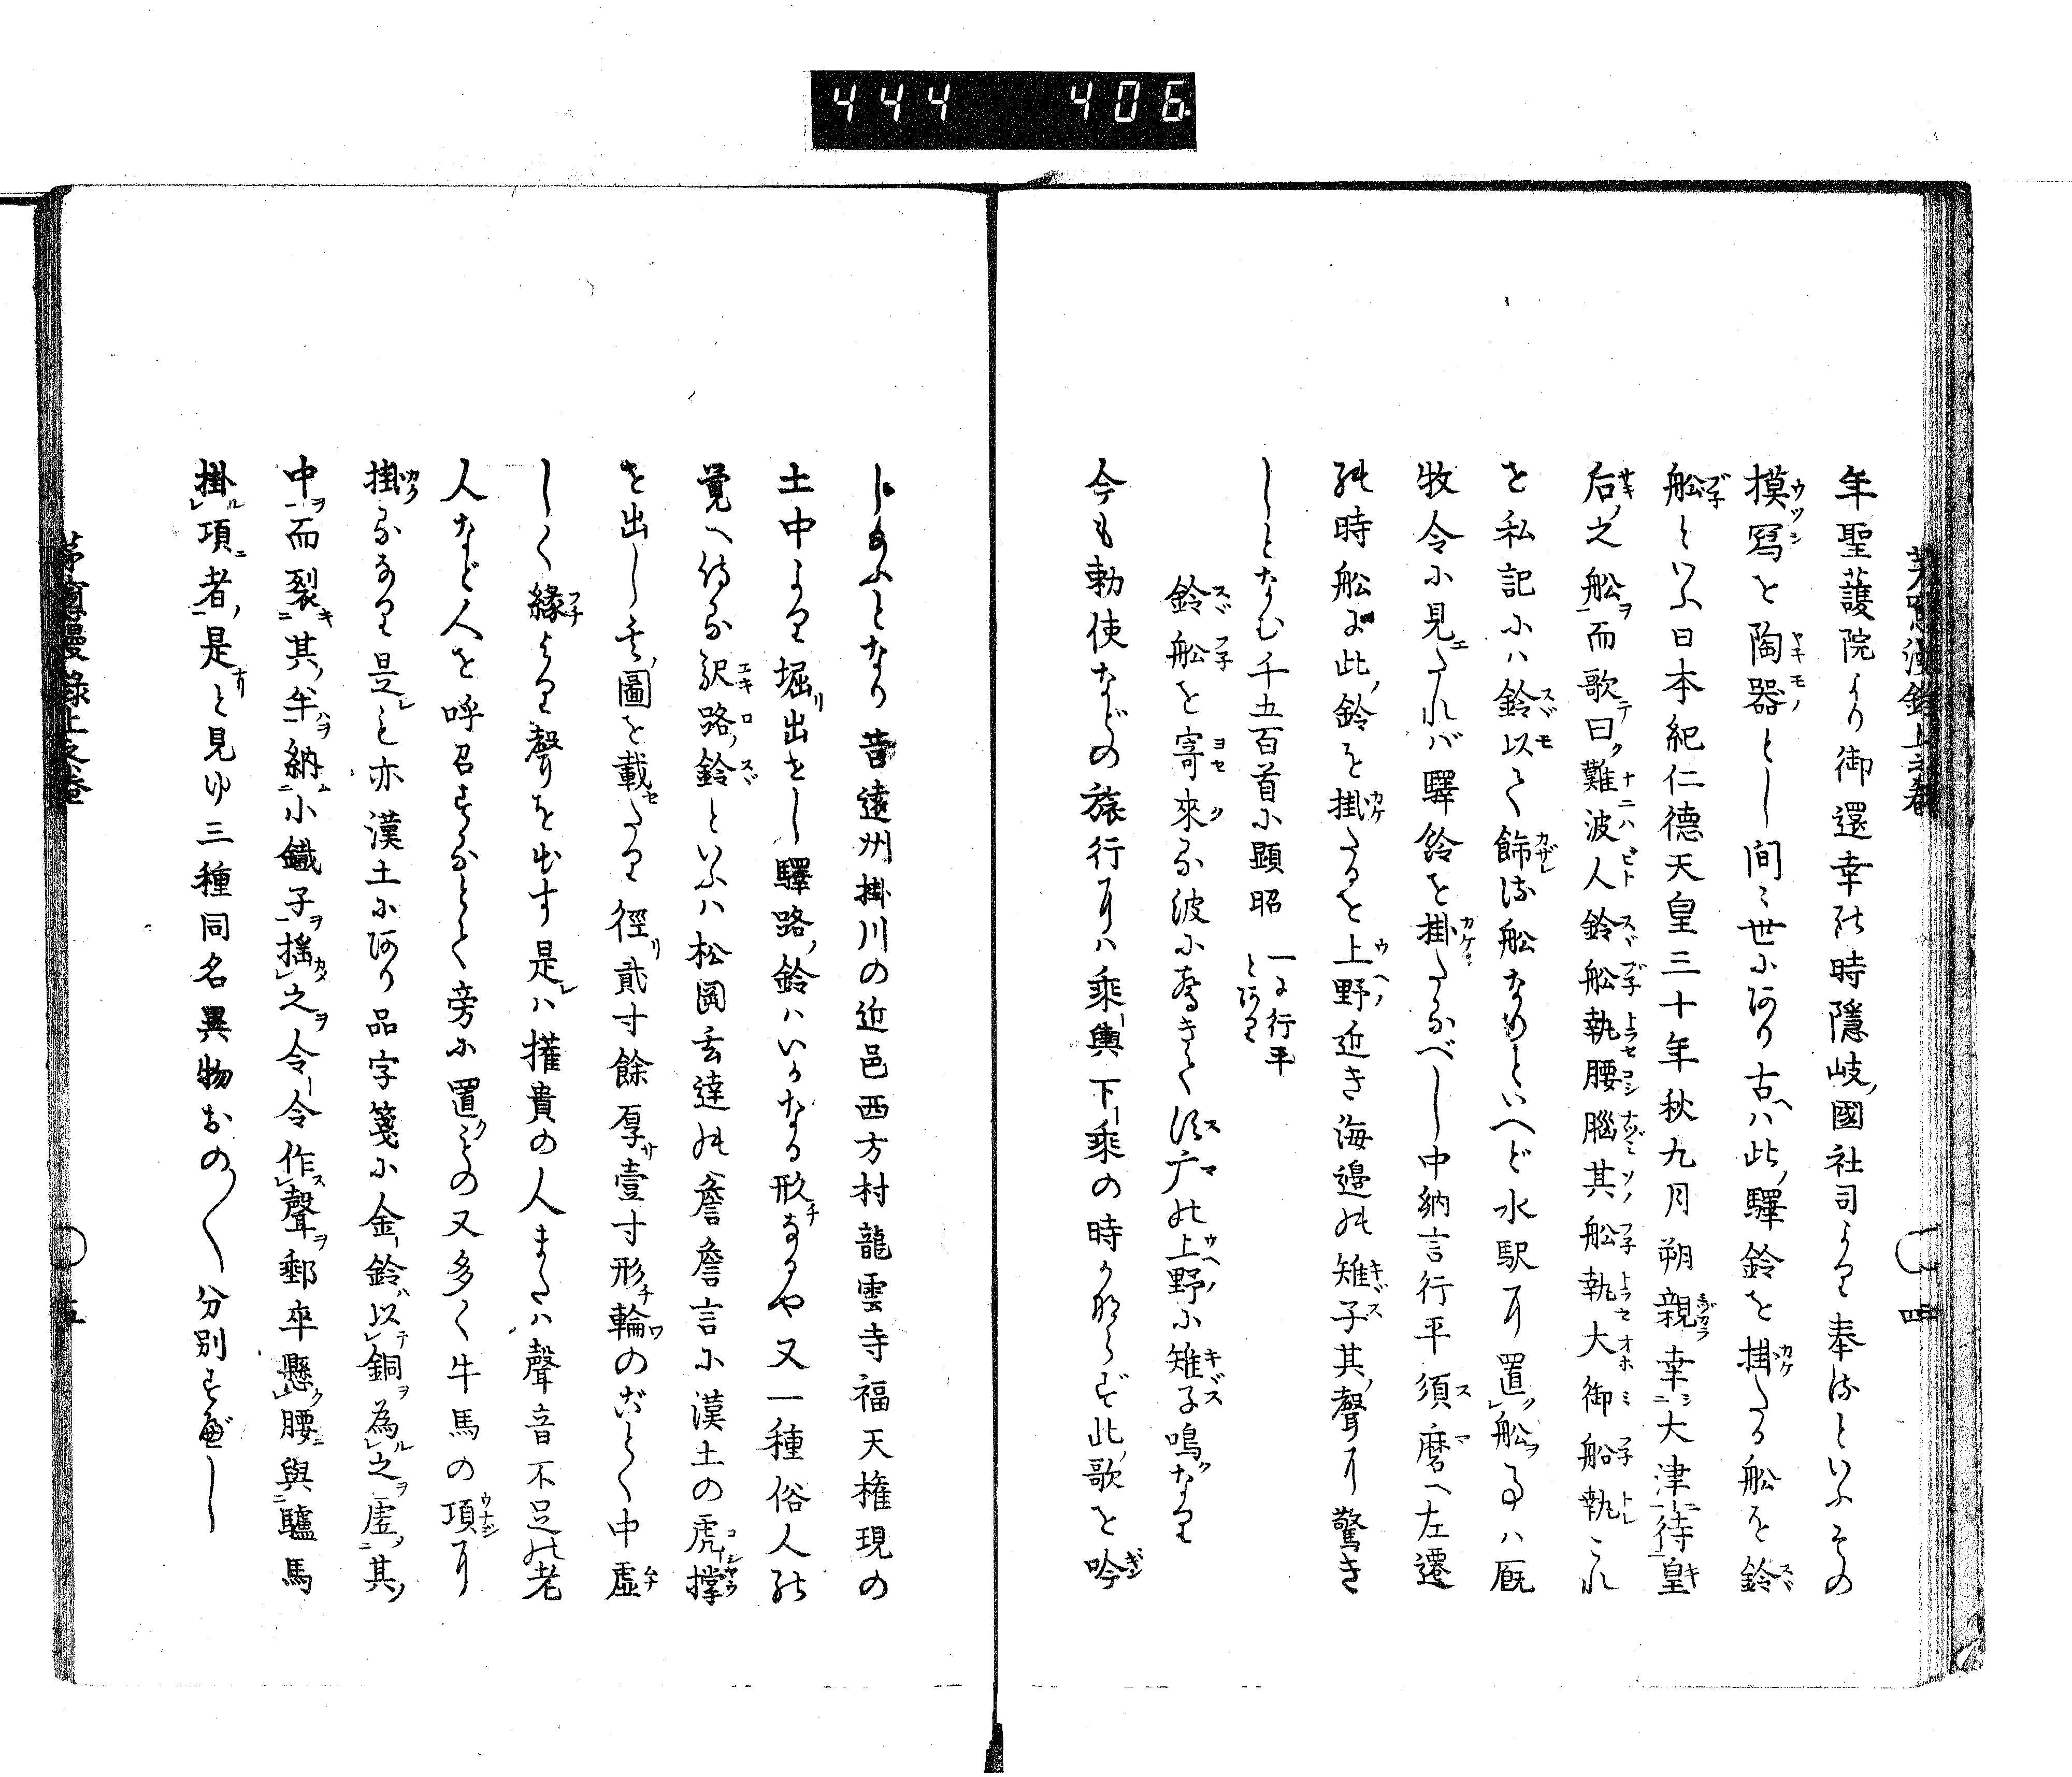 444 406
茅窓漫錄上之卷 ○四
年聖護院より御還幸の時隱岐ノ國社司より奉るといふその
摸寫を陶器とし間〻世にあり古へハ此ノ驛鈴を掛たる舩を鈴
舩といふ日本紀仁德天皇三十年秋九月朔親幸大津待皇
后之舩而歌曰難波人鈴舩執腰腦其舩執大御船執これ
を私記にハ鈴以て飾る舩なりといへど水駅に置舩る事ハ厩
牧令に見えたれバ驛鈴を掛たるべし中納言行平須磨へ左遷
の時舩に此ノ鈴を掛たるを上野近き海邉の雉子其ノ聲に驚き
しとなむ千五百首に顕昭 一に行平とあり
鈴舩を寄来る波に驚きて須广の上野に雉子鳴なり
今も勅使などの旅行にハ乘輿下乘の時かならず此ノ歌を吟
じ給ふとなり昔遠州掛川の近邑西方村龍雲寺福天権現の
土中より堀出せし驛路ノ鈴ハいかなる形なるや又一種俗人の
覺へ侍る駅路ノ鈴といふハ松岡玄達の詹詹言に漢土の虎撑
を出して圖を載たり徑リ貮寸餘厚サ壹寸形チ輪のごとく中虚
しく緣より聲を出す是レハ權貴の人またハ聲音不足の老
人など人を呼召するとて旁に置ものの又多く牛馬の項に
掛るなり是レも亦漢土にあり品字箋に金鈴ハ以銅為之虛其ノ
中而裂其ノ半納小鐡子揺之令令作聲郵卒懸腰與驢馬
掛項者是と見ゆ三種同名異物おの〱分別すべし
茅窓漫錄上之卷 ○五